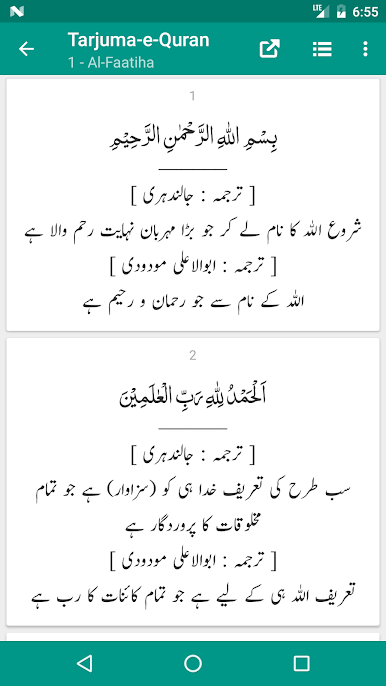 LTE 6:55
Tarjuma-e-Quran
1 - Al-Faatiha
1
بِسْمِ اللهِ الرَّحْمٰنِ الرَّحِيْمِ
[ ترجمہ : جالندہری ]
شروع الله کا نام لے کر جو بڑا مہربان نہایت رحم والا ہے
[ ترجمہ : ابوالاعلی مودودی ]
الله کے نام سے جو رحمان و رحیم ہے
2
اَلْحَمْدُ لِلّٰهِ رَبِّ الْعٰلَمِيْنَ
[ ترجمہ : جالندہری ]
سب طرح کی تعریف خدا ہی کو (سزاوار) ہے جو تمام
مخلوقات کا پروردگار ہے
[ ترجمہ : ابوالاعلی مودودی ]
تعریف الله ہی کے لیے ہے جو تمام کائنات کا رب ہے